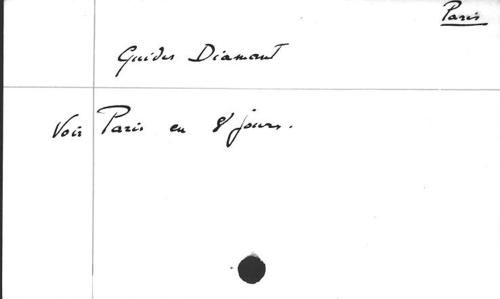 Paris
Guides Diamant
Voir Paris en 8 jours.